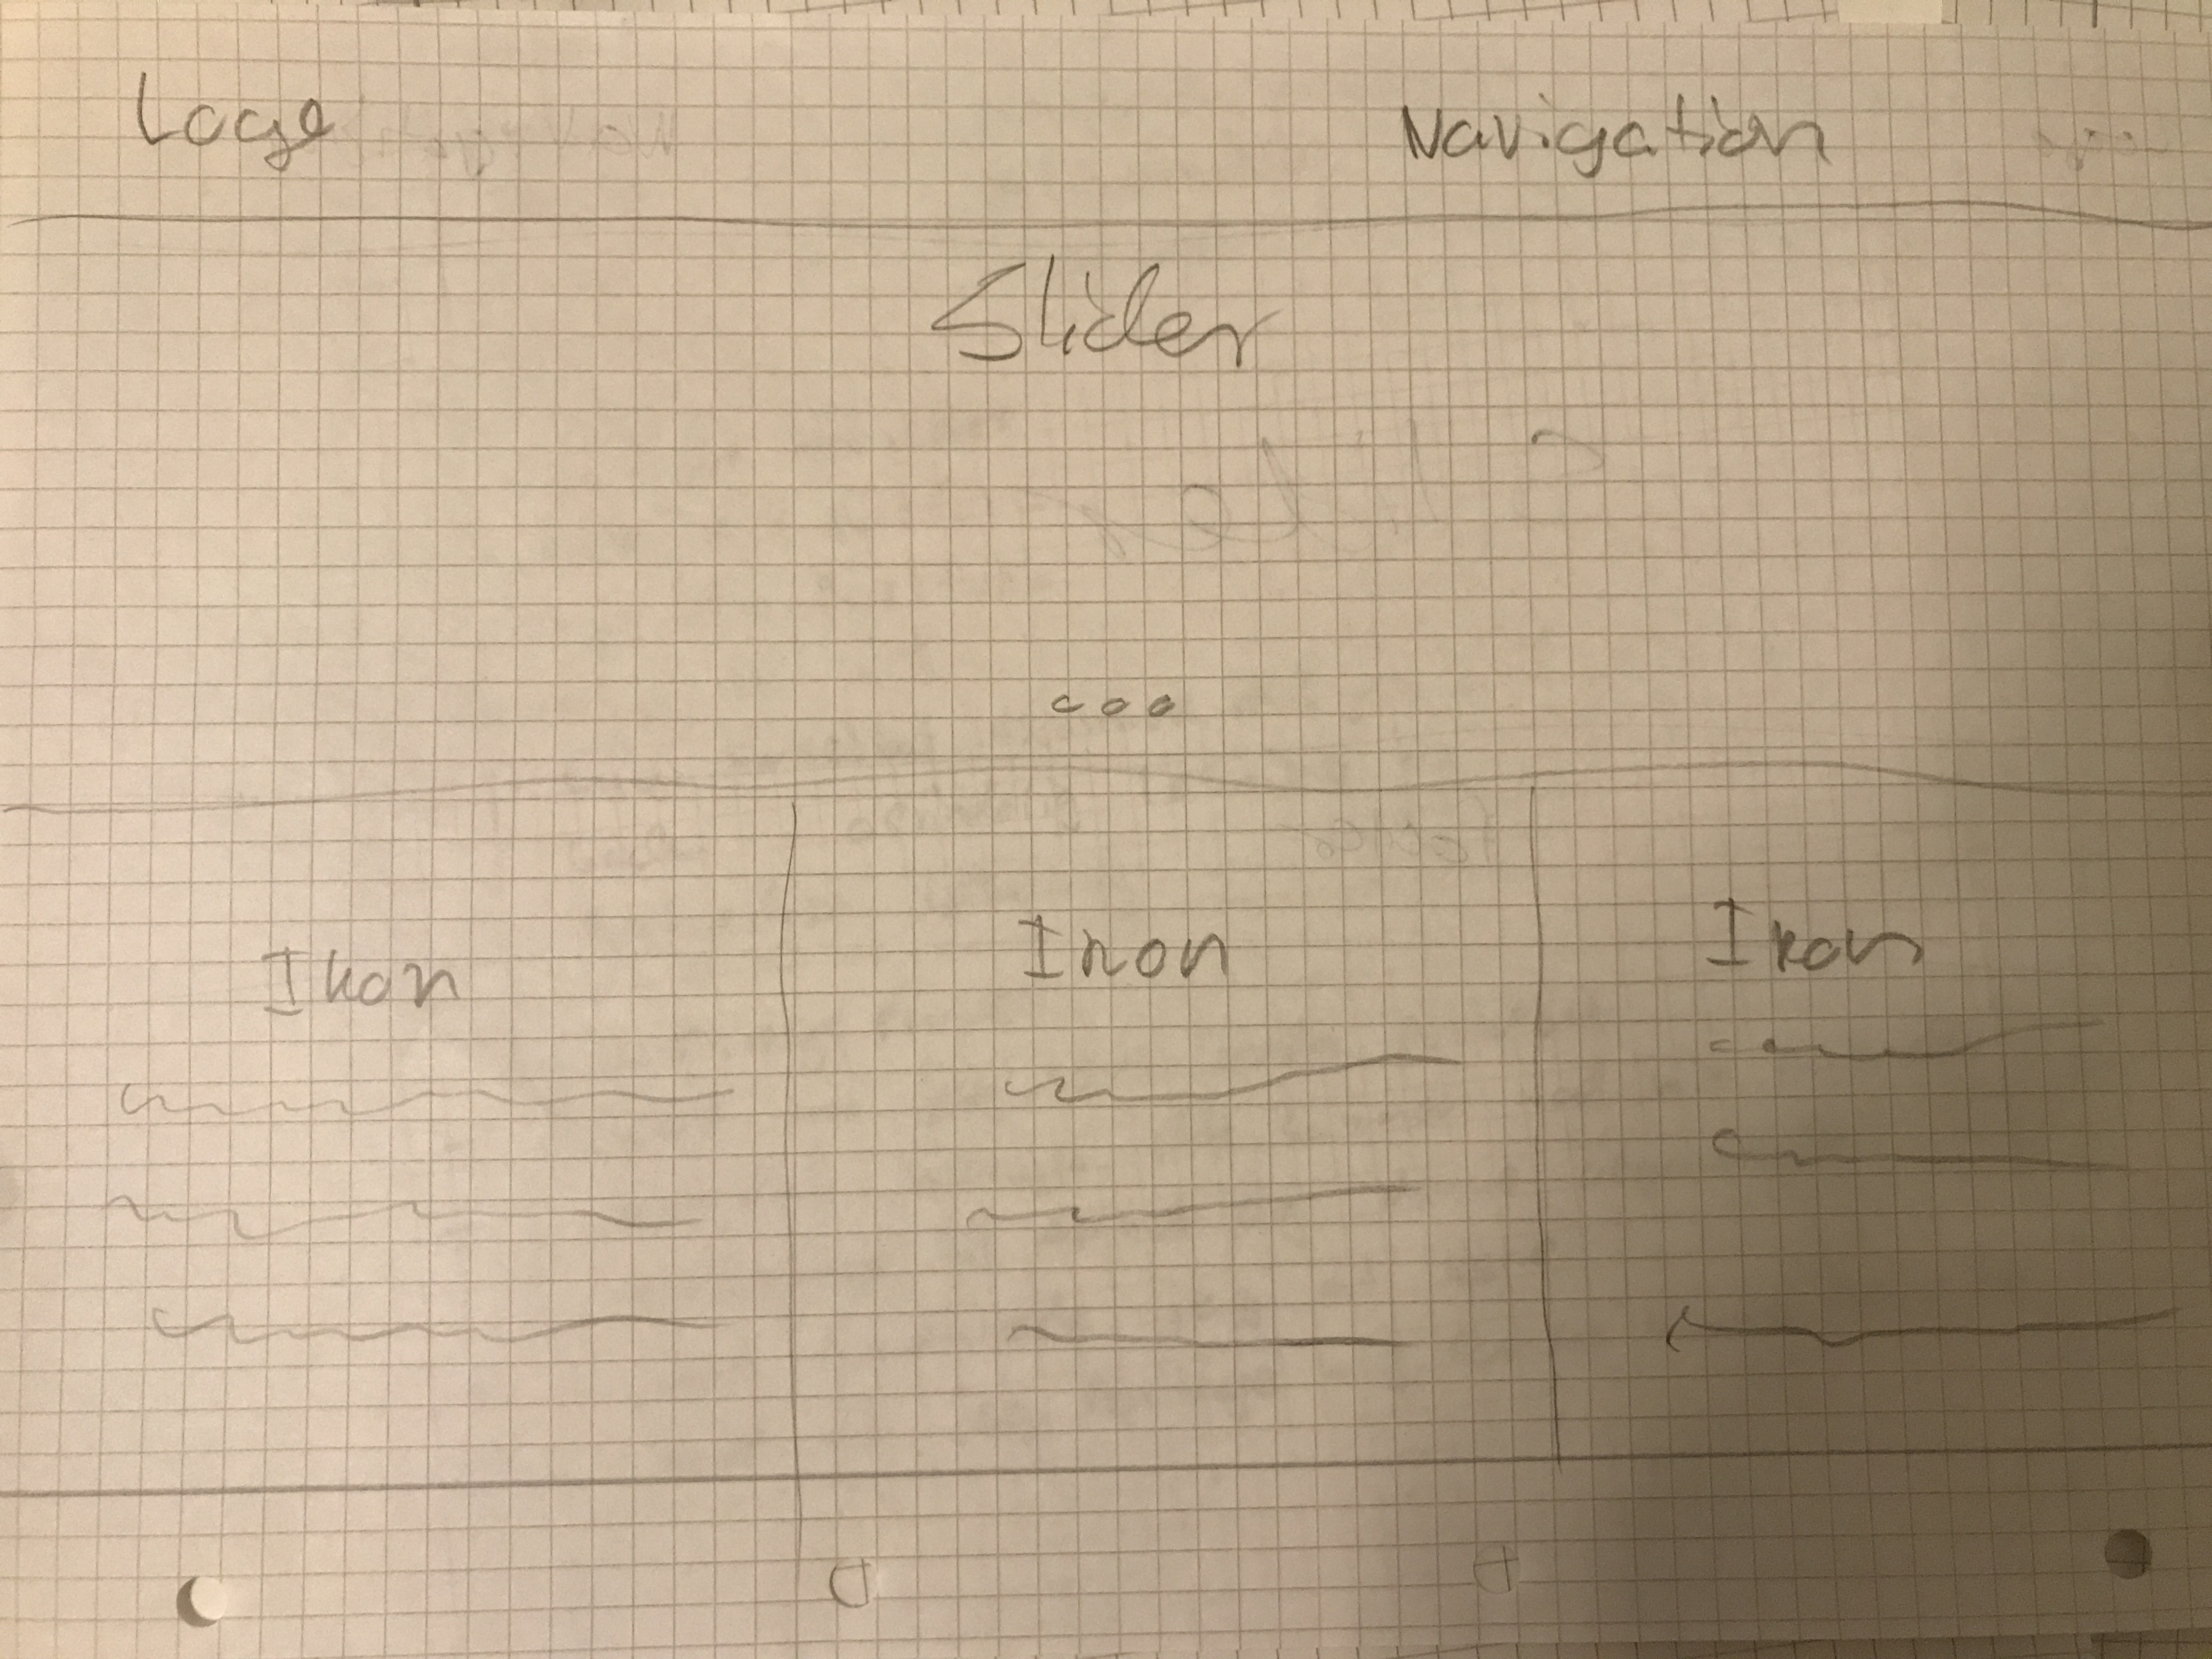 Logo Navigation
Slider
Ikon Ikon Ikon